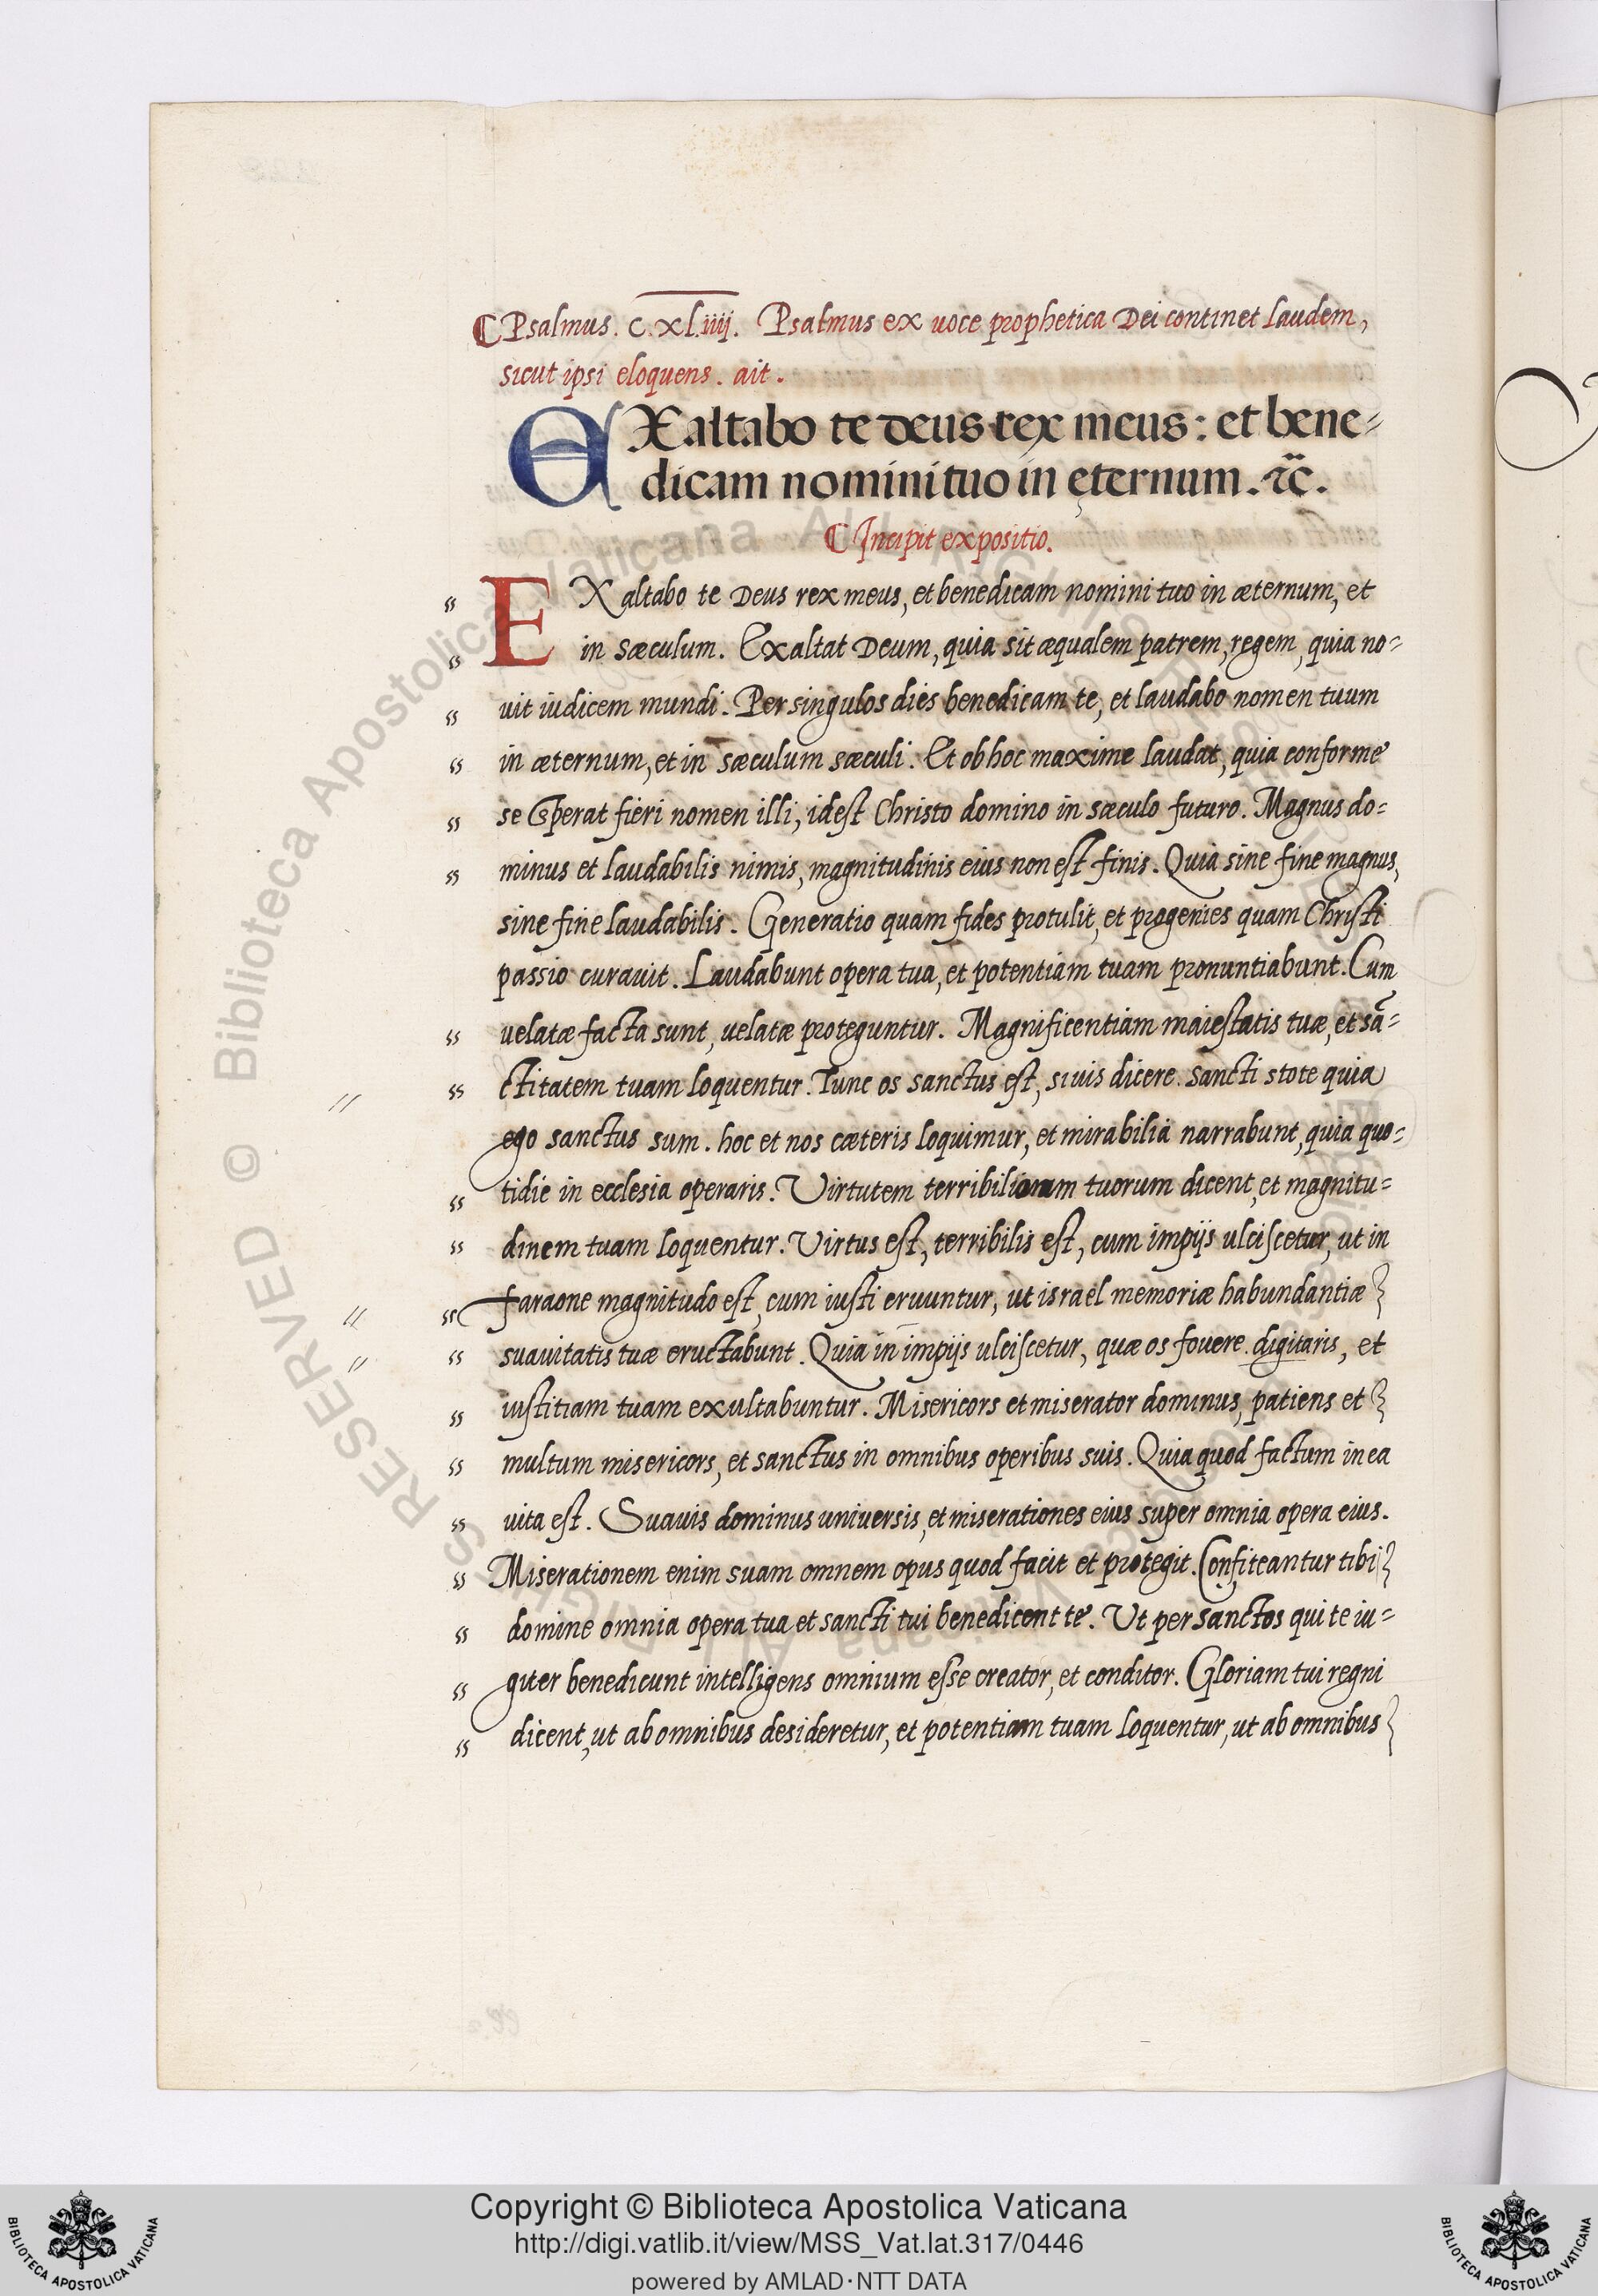 ☾ Psalmus. c. xl.iiij. Psalmus ex uoce prophetica Dei continet laudem,
sicut ipsi eloquens. ait.
EXaltabo te deus rex meus: et bene=
dicam nomini tuo in ęternum. ⁊c̃.
☾ Incipit expositio.
EXaltabo te Deus rex meus, et benedicam nomini tuo in æternum, et
in sæculum. Exaltat Deum, quia sit æqualem patrem, regem, quia no=
uit iudicem mundi. Per singulos dies benedicam te, et laudabo nomen tuum
in æternum, et in sæculum sæculi. Et ob hoc maxime laudat, quia conforme
se sperat fieri nomen illi, idest Christo domino in sæculo futuro. Magnus do=
minus et laudabilis nimis, magnitudinis eius non est finis. Quia sine fine magnus,
sine fine laudabilis. Generatio quam fides protulit, et progenies quam Christi
passio curauit. Laudabunt opera tua, et potentiam tuam pronuntiabunt. Cum
uelatæ facta sunt, uelatæ proteguntur. Magnificentiam maiestatis tuæ, et sã=
ctitatem tuam loquentur. Tunc os sanctus est, si uis dicere. Sancti stote quia
ego sanctus sum. hoc et nos cæteris loquimur, et mirabilia narrabunt, quia quo=
tidie in ecclesia operaris. Virtutem terribiliorum tuorum dicent, et magnitu=
dinem tuam loquentur. Virtus est, terribilis est, cum impijs ulciscetur, ut in
faraone magnitudo est, cum iusti eruuntur, ut israel memoriæ habundantiæ
suauitatis tuæ eructabunt. Quia in impijs ulciscetur, quæ os fouere digitaris, et
iustitiam tuam exultabuntur. Misericors et miserator dominus, patiens et
multum misericors, et sanctus in omnibus operibus suis. Quia quod factum in ea
uita est. Suauis dominus uniuersis, et miserationes eius super omnia opera eius.
Miserationem enim suam omnem opus quod facit et protegit. Confiteantur tibi
domine omnia opera tua et sancti tui benedicent te. Ut per sanctos qui te iu=
giter benedicunt intelligens omnium esse creator, et conditor. Gloriam tui regni
dicent, ut ab omnibus desideretur, et potentiam tuam loquentur, ut ab omnibus
© Biblioteca Apostolica Vaticana ALL RIGHTS RESERVED
Copyright © Biblioteca Apostolica Vaticana
http://digi.vatlib.it/view/MSS_Vat.lat.317/0446
powered by AMLAD·NTT DATA
BIBLIOTECA APOSTOLICA VATICANA
BIBLIOTECA APOSTOLICA VATICANA